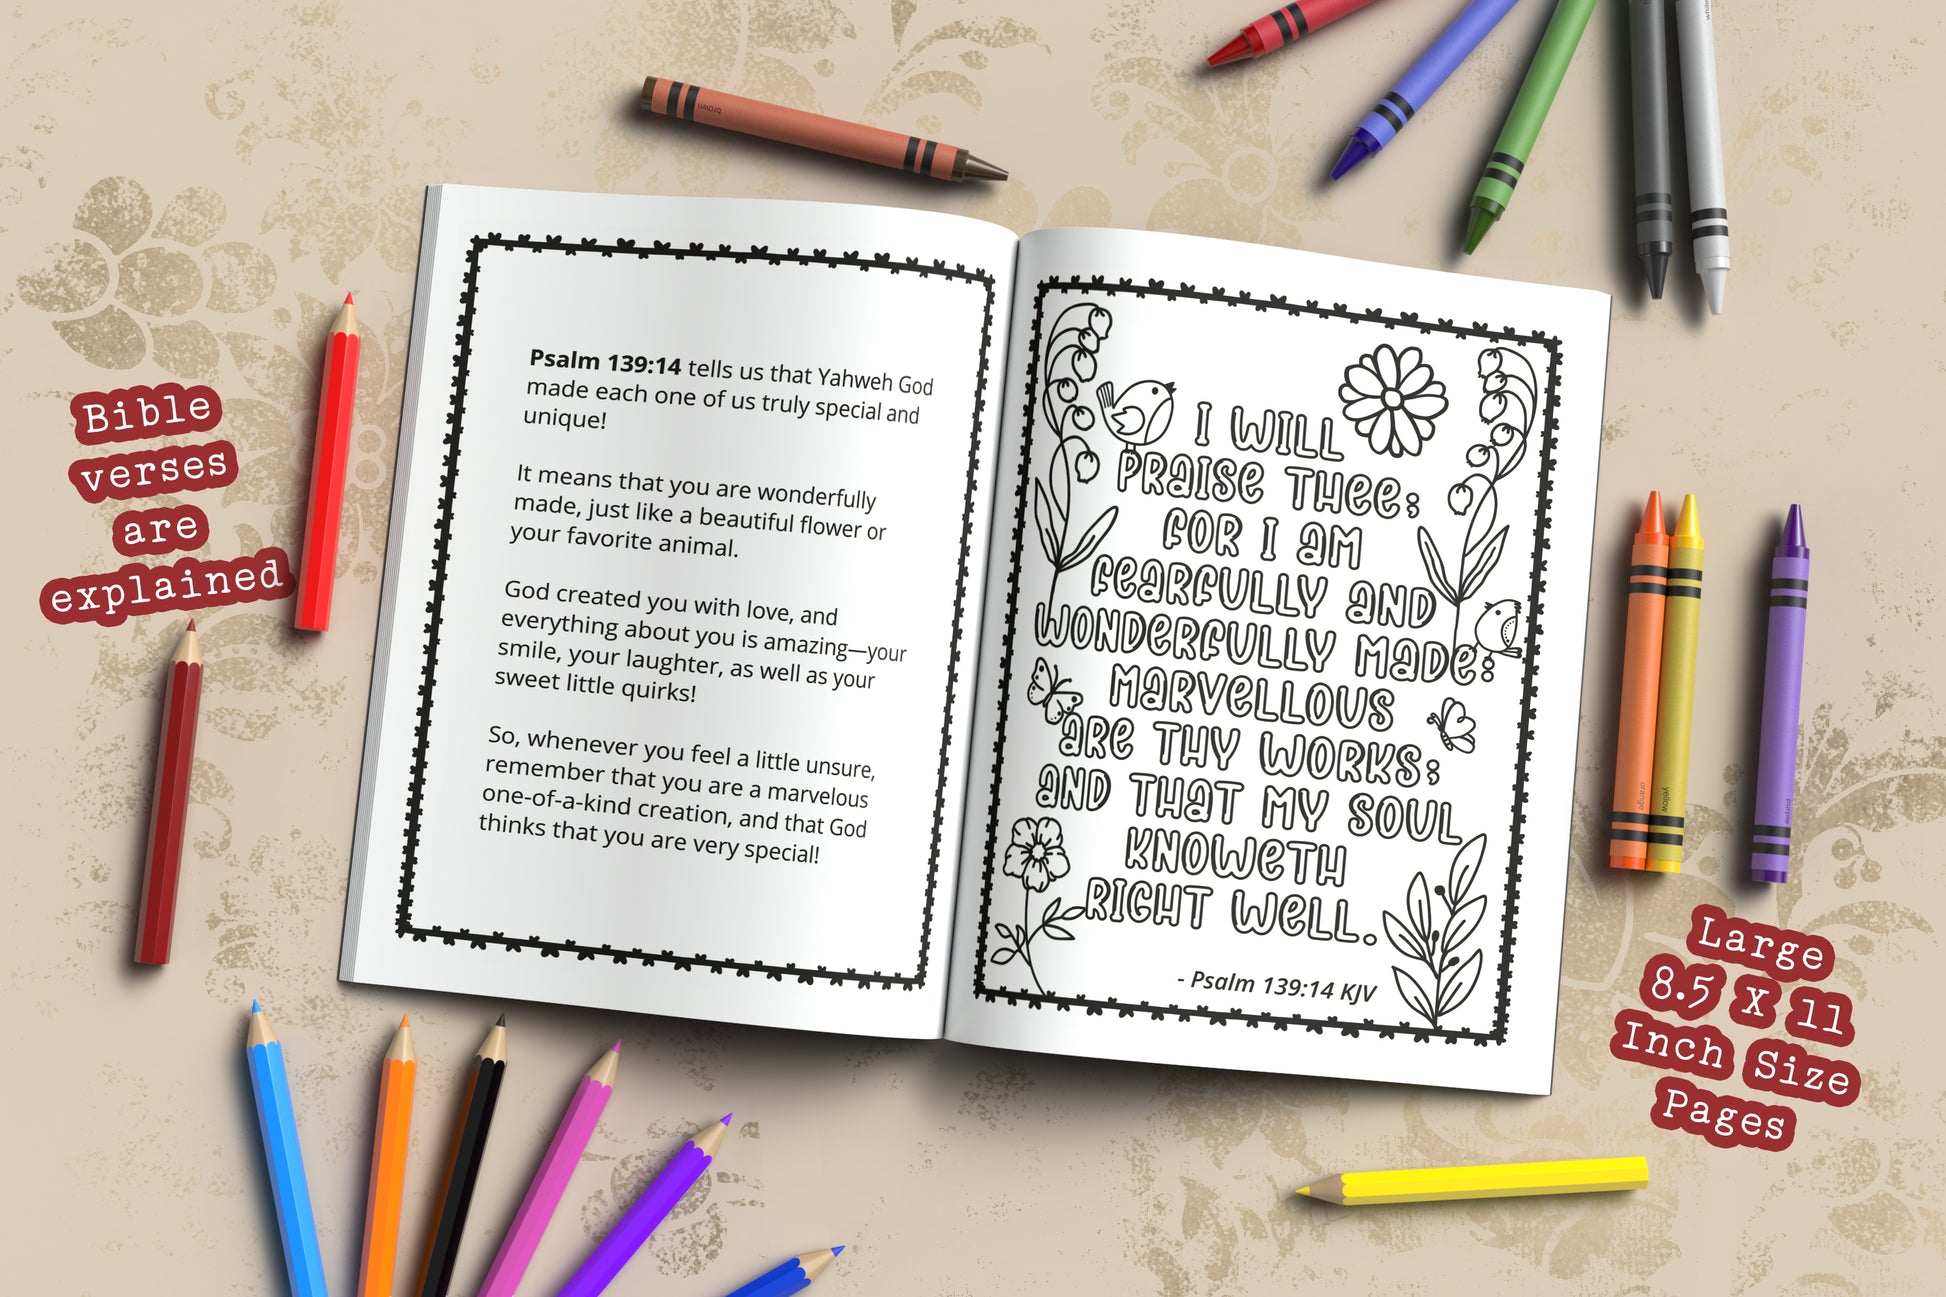 brown
white
Bible
verses
are
explained
Psalm 139:14 tells us that Yahweh God
made each one of us truly special and
unique!
It means that you are wonderfully
made, just like a beautiful flower or
your favorite animal.
God created you with love, and
everything about you is amazing—your
smile, your laughter, as well as your
sweet little quirks!
So, whenever you feel a little unsure,
remember that you are a marvelous
one-of-a-kind creation, and that God
thinks that you are very special!
I WILL
PRAISE THEE;
FOR I AM
FEARFULLY AND
WONDERFULLY MADE:
MARVELLOUS
ARE THY WORKS;
AND THAT MY SOUL
KNOWETH
RIGHT WELL.
- Psalm 139:14 KJV
orange
yellow
purple
Large
8.5 X 11
Inch Size
Pages